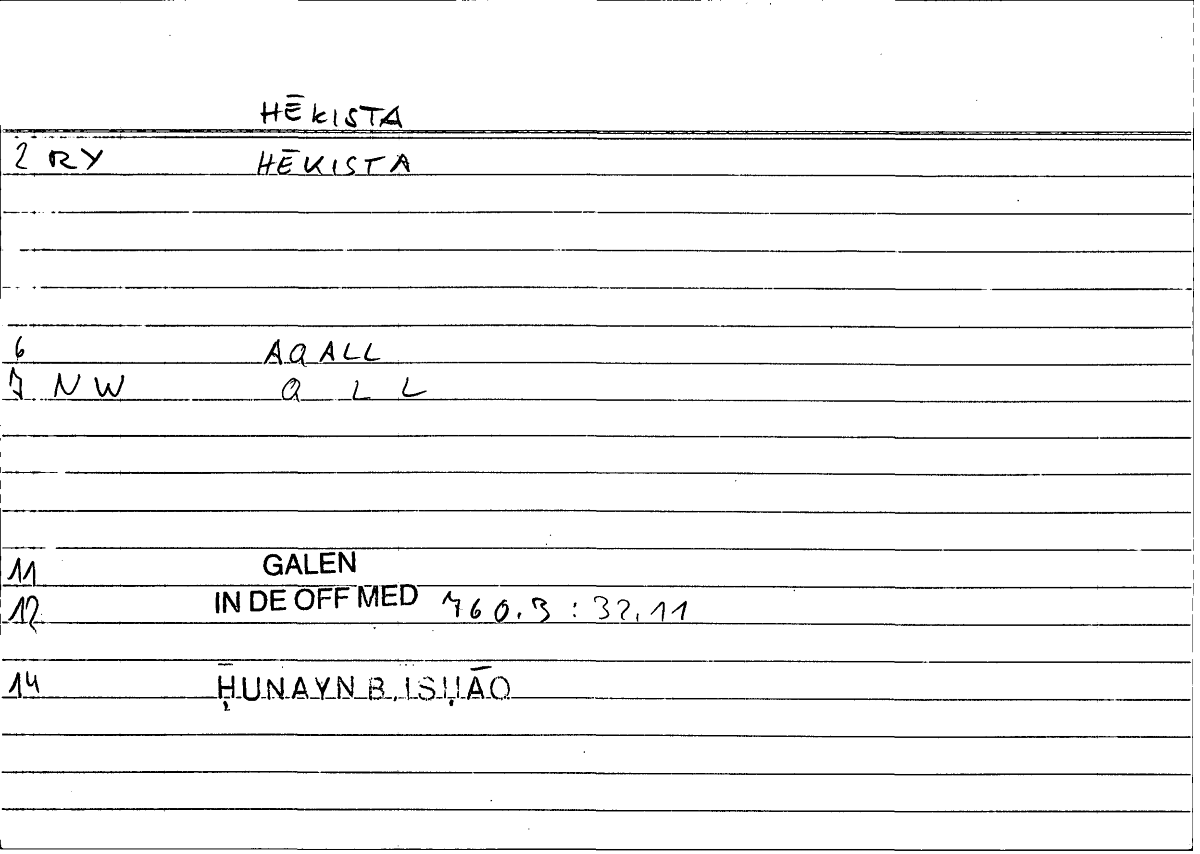 HĒKISTA
2 RY HĒKISTA
6 AQALL
7 NW Q L L
11 GALEN
12 IN DE OFF MED 760.3 : 32.11
14 ḤUNAYN B. ISḤĀQ